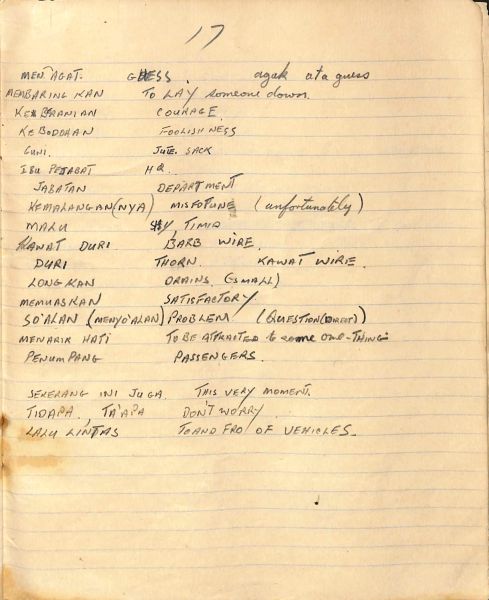 17
MEN'AGAT. GUESS. agak ata guess
MEMBARING KAN TO LAY someone down.
KEBERANIAN COURAGE.
KEBODOHAN FOOLISHNESS
GUNI. JUTE. SACK
IBU PEJABAT HQ.
JABATAN DEPARTMENT
KEMALANGAN(NYA) MISFOTUNE (unfortunately)
MALU SHY, TIMID
KAWAT DURI BARB WIRE.
DURI THORN. KAWAT WIRE.
LONGKAN DRAINS. (SMALL)
MEMUASKAN SATISFACTORY
SO'ALAN (MENYO'ALAN) PROBLEM (QUESTION(DIRECT))
MENARIK HATI TO BE ATTRAITED to some one-THING
PENUMPANG PASSENGERS.
SEKERANG INI JUGA. THIS VERY MOMENT.
TIDAPA, TA'APA DON'T WORRY
LALU LINTAS TO AND FRO OF VEHICLES.